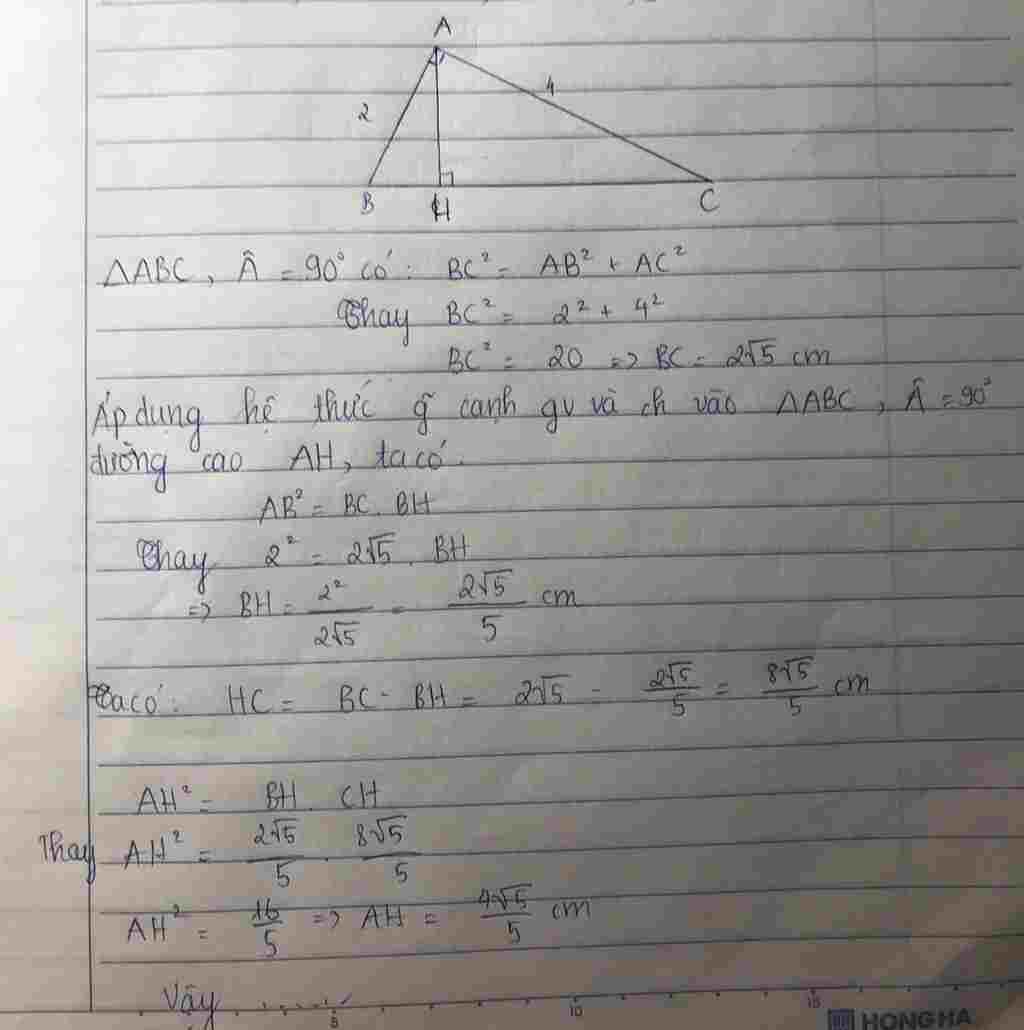 A
2
4
B H C
ΔABC, Â = 90° có: BC² = AB² + AC²
Thay BC² = 2² + 4²
BC² = 20 => BC = 2√5 cm
Áp dụng hệ thức g̃ cạnh gv và ch vào ΔABC, Â = 90°
đường cao AH, ta có:
AB² = BC. BH
Thay 2² = 2√5 . BH
=> BH = 2²/2√5 = 2√5/5 cm
Ta có: HC = BC - BH = 2√5 - 2√5/5 = 8√5/5 cm
AH² = BH. CH
Thay AH² = 2√5/5 . 8√5/5
AH² = 16/5 => AH = 4√5/5 cm
Vậy ....
5 10 15
HONG HA